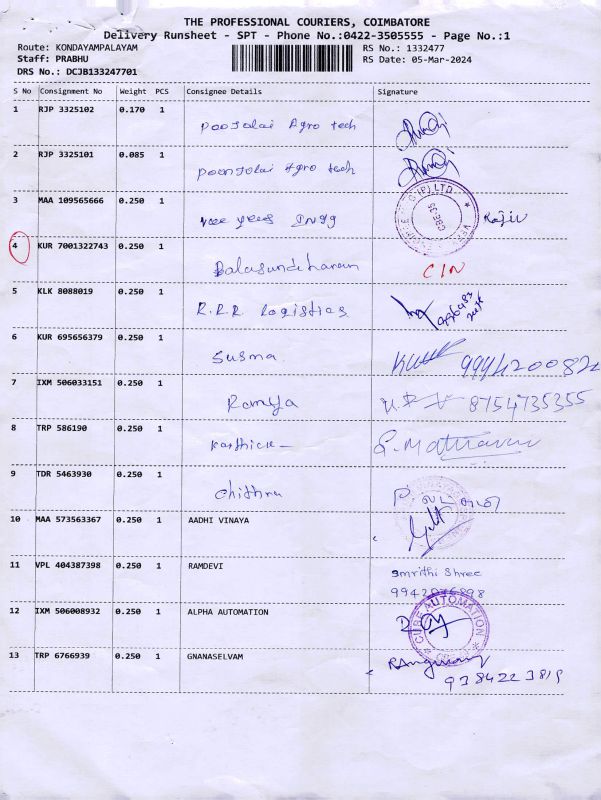 THE PROFESSIONAL COURIERS, COIMBATORE
Delivery Runsheet - SPT - Phone No.:0422-3505555 - Page No.:1
Route: KONDAYAMPALAYAM
Staff: PRABHU
DRS No.: DCJB133247701
RS No.: 1332477
RS Date: 05-Mar-2024
S No Consignment No Weight PCS Consignee Details Signature
1 RJP 3325102 0.170 1 Agro tech
2 RJP 3325101 0.085 1 Agro tech
3 MAA 109565666 0.250 1 Rajiv
4 KUR 7001322743 0.250 1 CIN
5 KLK 8088019 0.250 1 R.R.R Logistics
6 KUR 695656379 0.250 1 Susma
7 IXM 506033151 0.250 1 Ramya 8754735355
8 TRP 586190 0.250 1 Karthick
9 TDR 5463930 0.250 1 Chithra
10 MAA 573563367 0.250 1 AADHI VINAYA
11 VPL 404387398 0.250 1 RAMDEVI Smrithi Shree
12 IXM 506008932 0.250 1 ALPHA AUTOMATION CUBE AUTOMATION
13 TRP 6766939 0.250 1 GNANASELVAM
9384223819